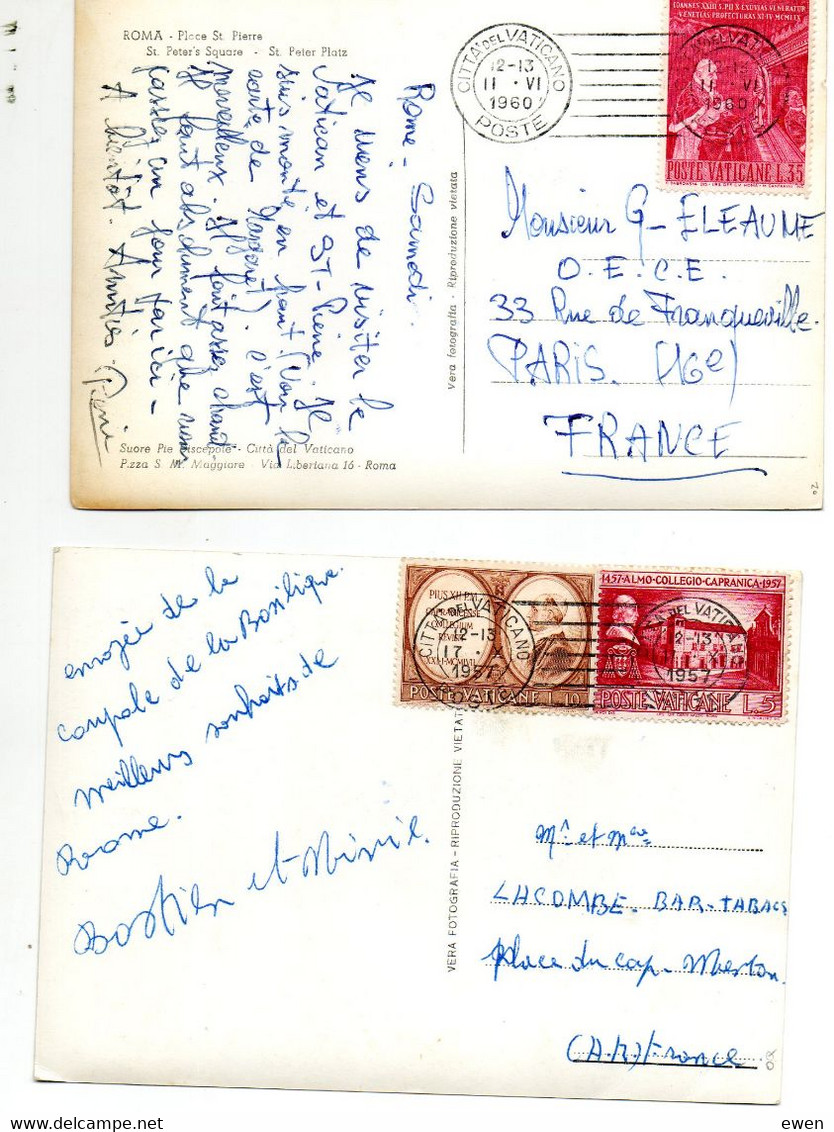 ROMA - Place St. Pierre
St. Peter's Square - St. Peter Platz
Rome - Samedi.
Je viens de visiter le
Vatican et St-Pierre. Je
suis monté en haut (Voir la
carte de Margaret). C'est
merveilleux. Il fait assez chaud
Il faut absolument que vous
passiez un jour par ici -
A bientôt. Amitiés.
Pierre
Suore Pie Discepole - Città del Vaticano
P.zza S. M. Maggiore - Via Liberiana 16 - Roma
Vera fotografia - Riproduzione vietata
CITTÀ DEL VATICANO
12-13
11 · VI
1960
POSTE
IOANNES XXIII S. PII X EXUVIAS VENERATUR
VENETIAS PROFECTURAS XI·IV·MCMLIX
POSTE VATICANE L.35
Monsieur G- ELEAUME
O.E.C.E.
33 Rue de Franqueville.
PARIS. (16e)
FRANCE
20
envoyée de la
coupole de la Basilique.
meilleurs souhaits de
Rome.
Bastien et Mimie.
PIUS XII P.M.
CAPRANICENSE
COLLEGIUM
REVISIT
XXI-I-MCMLVII
POSTE VATICANE L.10
1457·ALMO·COLLEGIO·CAPRANICA·1957
POSTE VATICANE L.5
CITTÀ DEL VATICANO
12-13
17 · X
1957
VERA FOTOGRAFIA - RIPRODUZIONE VIETATA
Mr et Mme
LACOMBE - BAR-TABACS
Place du cap.
(A.M) France
ewen